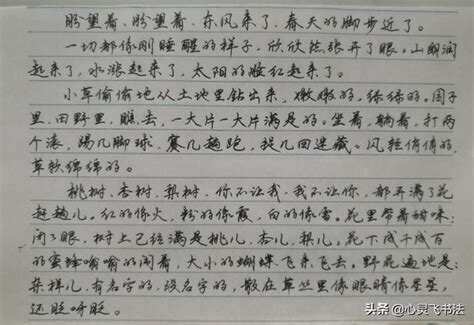 盼望着,盼望着,东风来了,春天的脚步近了。
一切都像刚睡醒的样子,欣欣然张开了眼。山朗润
起来了,水涨起来了,太阳的脸红起来了。
小草偷偷地从土地里钻出来,嫩嫩的,绿绿的。园子
里,田野里,瞧去,一大片一大片满是的。坐着,躺着,打两
个滚,踢几脚球,赛几趟跑,捉几回迷藏。风轻悄悄的,
草软绵绵的。
桃树、杏树、梨树,你不让我,我不让你,都开满了花
赶趟儿。红的像火,粉的像霞,白的像雪。花里带着甜味;
闭了眼,树上已经满是桃儿、杏儿、梨儿,花下成千成百
的蜜蜂嗡嗡的闹着,大小的蝴蝶飞来飞去。野花遍地是:
杂样儿,有名字的,没名字的,散在草丛里像眼睛像星星,
还眨呀眨。
头条 @心灵飞书法